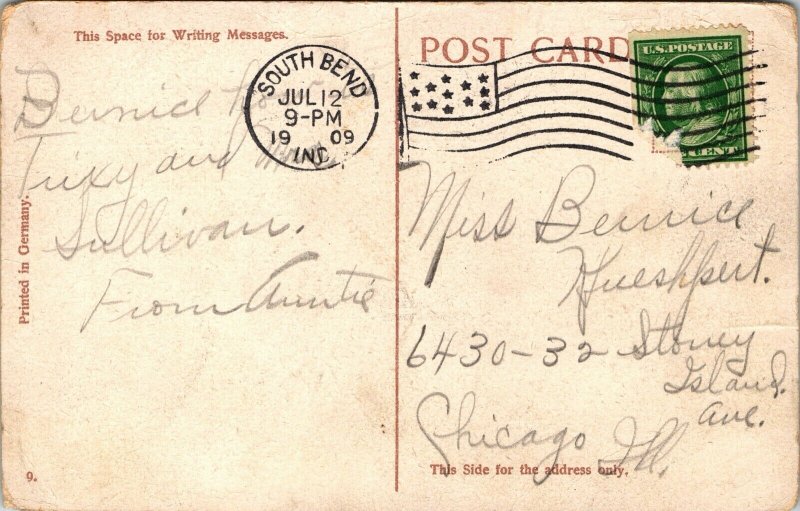 This Space for Writing Messages.
Bernice
Trixy and
Sullivan.
From Auntie
Printed in Germany.
9.
SOUTH BEND
JUL 12
9-PM
1909
IND.
POST CARD
U.S. POSTAGE
CENT
Miss Bernice
Hueshpert.
6430-32 Stoney
Island.
ave.
Chicago Ill.
This Side for the address only.